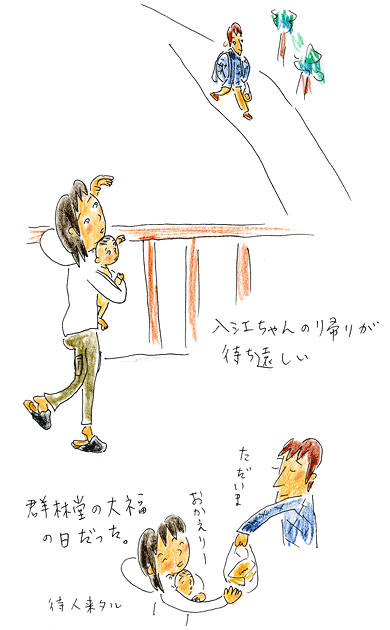 入江ちゃんの帰りが
待ち遠しい
ただいま
おかえりー
群林堂の大福
の日だった。
待人来タル